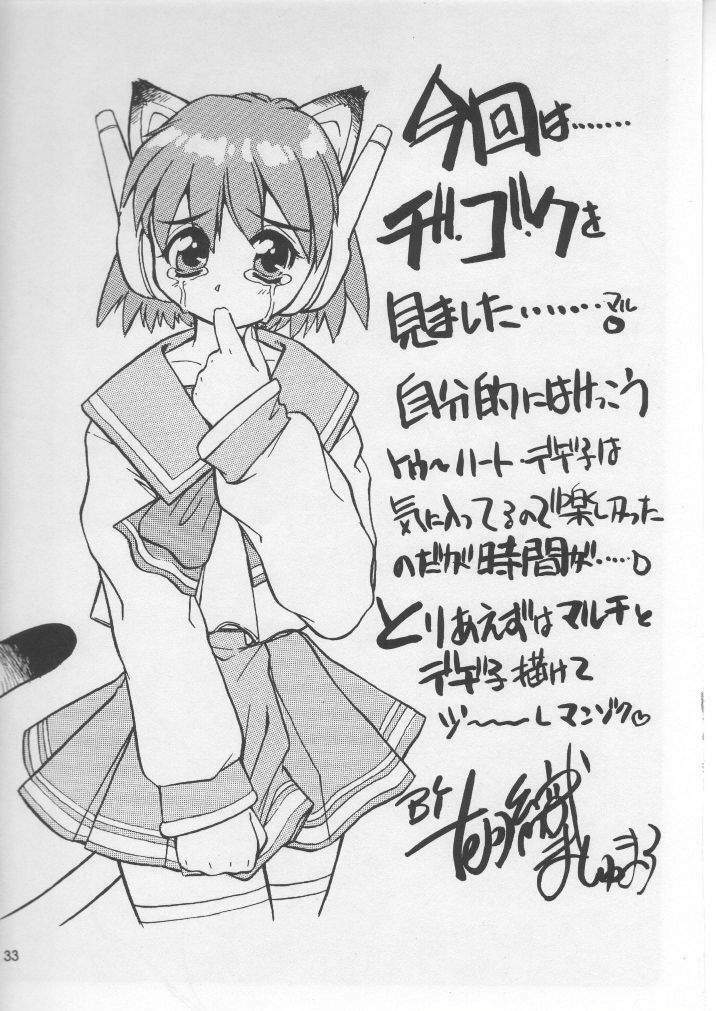 今回は……
デ・ゴ・クを
見ました……。マル
自分的にはけっこう
トゥ～ハート デギ子は
気に入ってるので楽しかった
のだが時間が……
とりあえずはマルチと
デギ子描けて
ヅ～～しマンゾク♡
BY
ましゅまろ
33